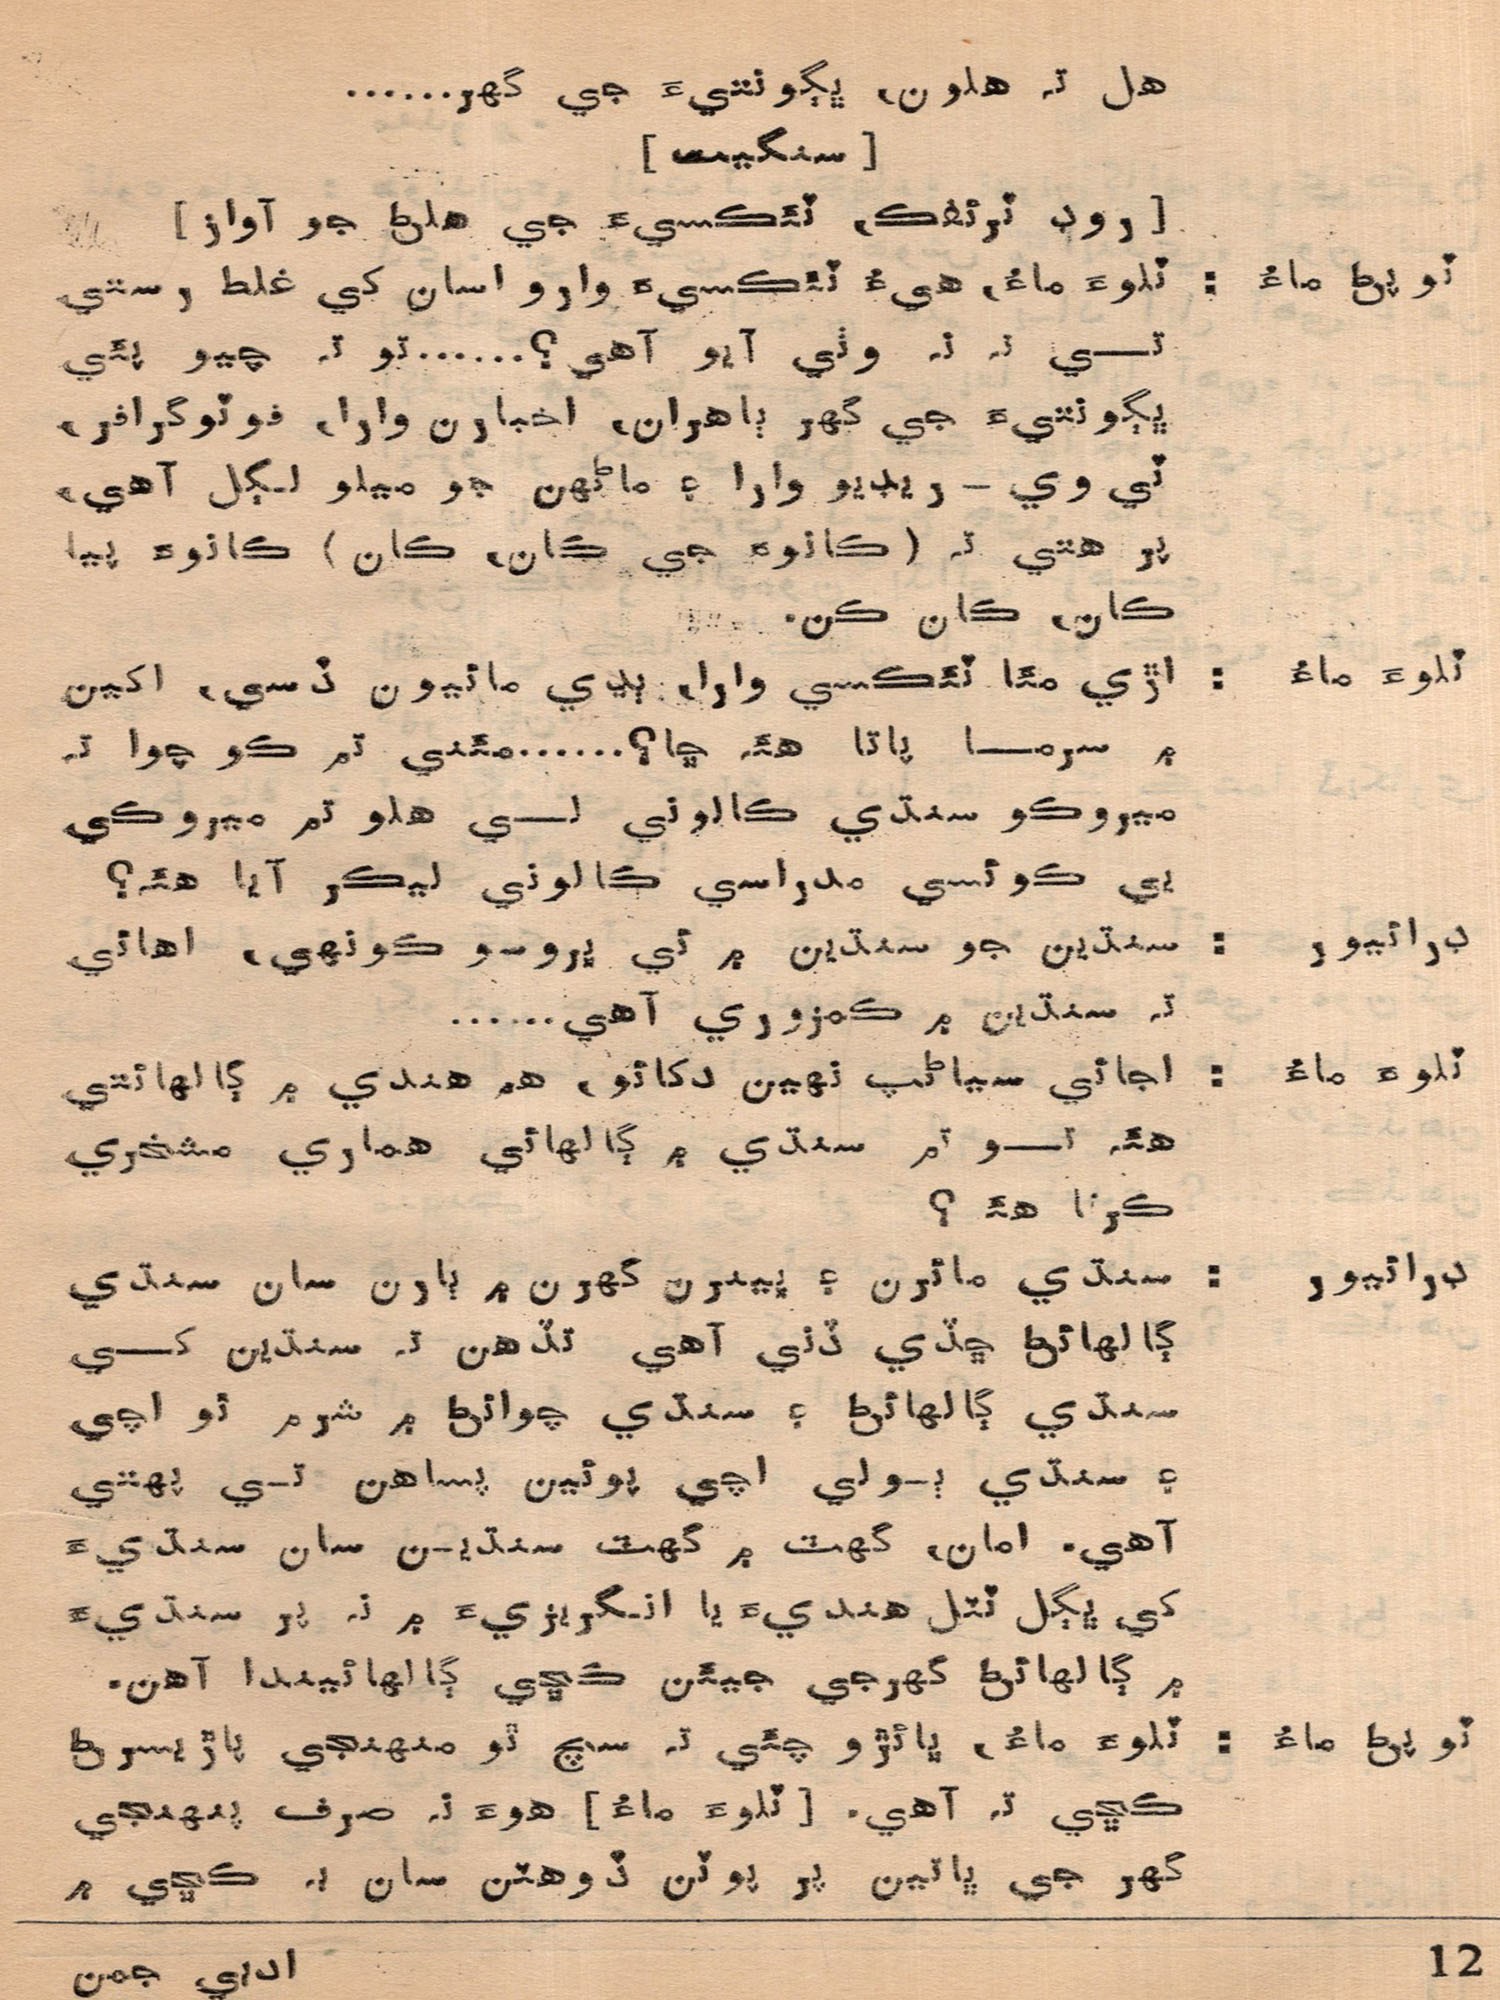 هل تہ هلون، ڀڳونتيءَ جي گهر......
[ سنگيت ]
[ روڊ ٽرئفڪ، ٽئڪسيءَ جي هلڻ جو آواز ]
ٽوپڻ ماءُ : ٽلوءَ ماءُ، هيءُ ٽئڪسيءَ وارو اسان کي غلط رستي
تي تہ نہ وٺي آيو آهي؟......تو تہ چيو پئي
ڀڳونتيءَ جي گهر ٻاهران، اخبارن وارا، فوٽوگرافر،
ٽي وي - ريڊيو وارا ۽ ماڻهن جو ميلو لڳل آهي،
پر هتي تہ (ڪانوءَ جي ڪان، ڪان) ڪانوءَ پيا
ڪان، ڪان ڪن.
ٽلوءَ ماءُ : اڙي مئا ٽئڪسي وارا، ٻڍي مائيون ڏسي، اکين
۾ سرما پاتا هئہ ڇا؟......مئني تم ڪو چوا تہ
ميروڪو سنڌي ڪالوني لي هلو تم ميروڪي
يي ڪوئسي مدراسي ڪالوني ليڪر آيا هئہ؟
ڊرائيور : سنڌين جو سنڌين ۾ ئي ڀروسو ڪونهي، اهائي
تہ سنڌين ۾ ڪمزوري آهي......
ٽلوءَ ماءُ : اجائي سياڻپ نهين دکائو، هم هندي ۾ ڳالهائتي
هئہ تو تم سنڌي ۾ ڳالهائي هماري مشخري
ڪرتا هئہ ؟
ڊرائيور : سنڌي مائرن ۽ ڀينرن گهرن ۾ ٻارن سان سنڌي
ڳالهائڻ ڇڏي ڏني آهي تڏهن تہ سنڌين کي
سنڌي ڳالهائڻ ۽ سنڌي چوائڻ ۾ شرم ٿو اچي
۽ سنڌي ٻولي اچي پوئين پساهن تي پهتي
آهي. امان، گهٽ ۾ گهٽ سنڌين سان سنڌيءَ
کي ڀڳل ٽٽل هنديءَ يا انگريزيءَ ۾ نہ پر سنڌيءَ
۾ ڳالهائڻ گهرجي جيئن ڪڇي ڳالهائيندا آهن.
ٽوپڻ ماءُ : ٽلوءَ ماءُ، ڀائڙو چئي تہ سچ ٿو منهنجي پاڙيسرڻ
ڪڇي تہ آهي. [ٽلوءَ ماءُ] هوءَ نہ صرف پنهنجي
گهر جي ڀاتين پر پوٽن ڏوهٽن سان بہ ڪڇي ۾
ادبي جمن
12